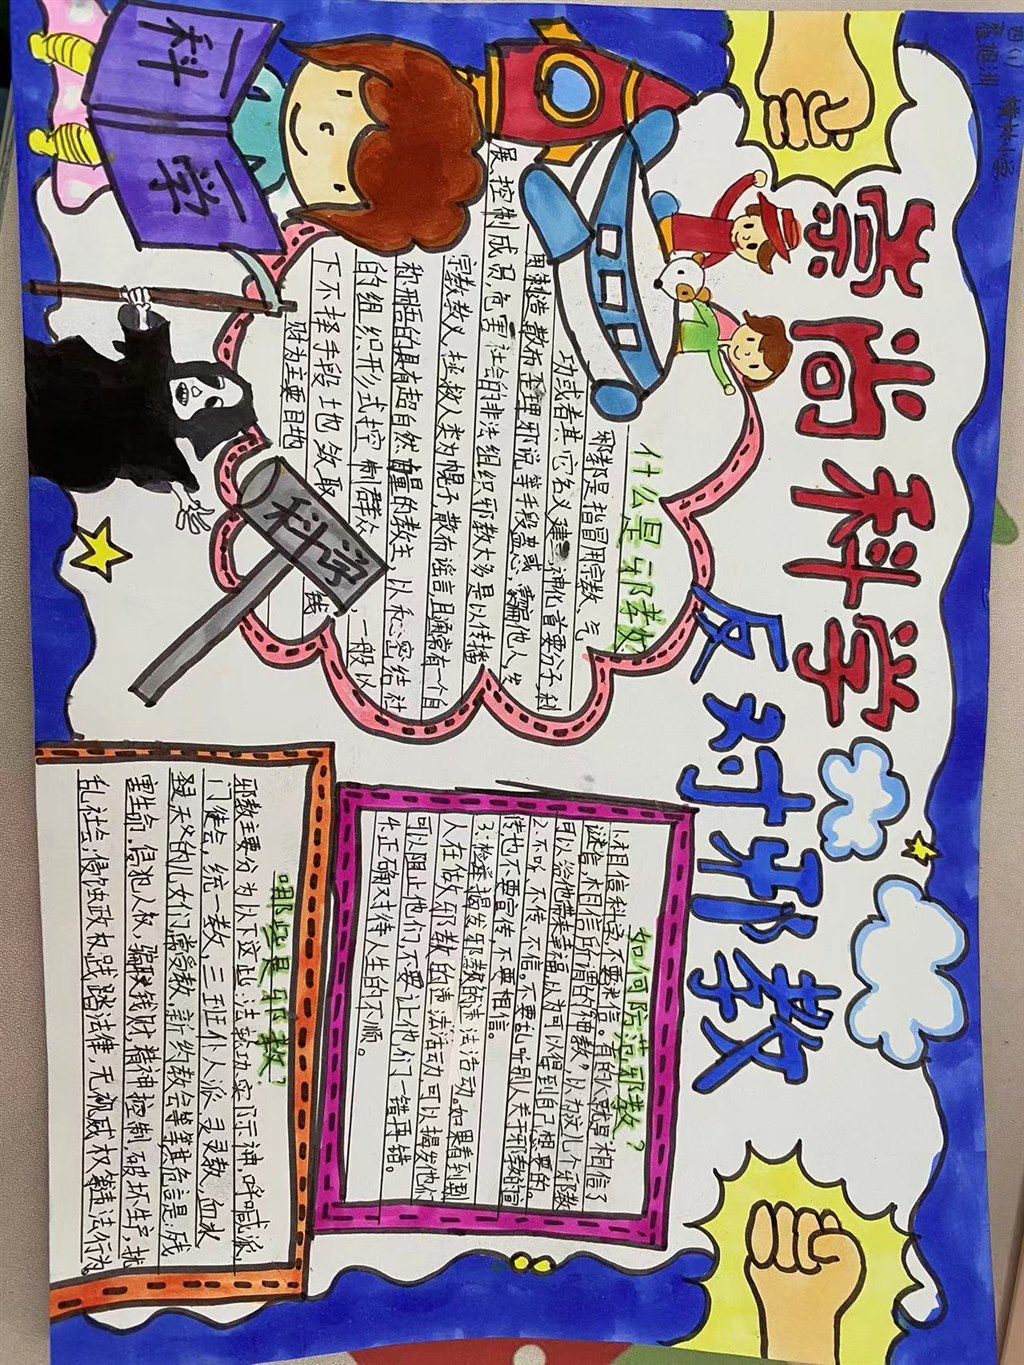 崇尚科学
反对邪教
四(1)
科学
科学
什么是邪教
邪教是指冒用宗教、气
功或者其它名义建 神化首要分子,利
用制造、散布歪理邪说等手段蛊惑、蒙骗他人,发
展、控制成员,危害社会的非法组织邪教大多是以传播
宗教教义、拯救人类为幌子,散布谣言,且通常有一个自
称开悟的具有超自然力量的教主,以秘密结社
的组织形式控制群众,一般以
下不择手段地敛取 钱
财为主要目地
如何防范邪教?
1.相信科学,不要迷信。有的人就是相信了
谜信,木相信所谓的“神教”,以为这几个邪教
可以给他带来幸福,以为可以得到自己想要的。
2.不听、不传、不信。不要乱听别人关于邪教的宣
传,也不要宣传,不要相信。
3.检举揭发邪教的违法活动。如果看到别
人在做邪教的违法活动可以揭发他们
可以阻止他们,不要让他们一错再错。
4.正确对待人生的不顺。
哪些是邪教?
邪教主要分为以下这些:法轮功、实际神、呼喊派、
门徒会,统一教,三班仆人派、灵灵教,血水
教、天父的儿女们、常受教、新约教会等等其危害是:残
害生命,侵犯人权,骗取钱财,精神控制,破坏生产,扰
乱社会;侵蚀政权,践踏法律,无视威权等违法行为。